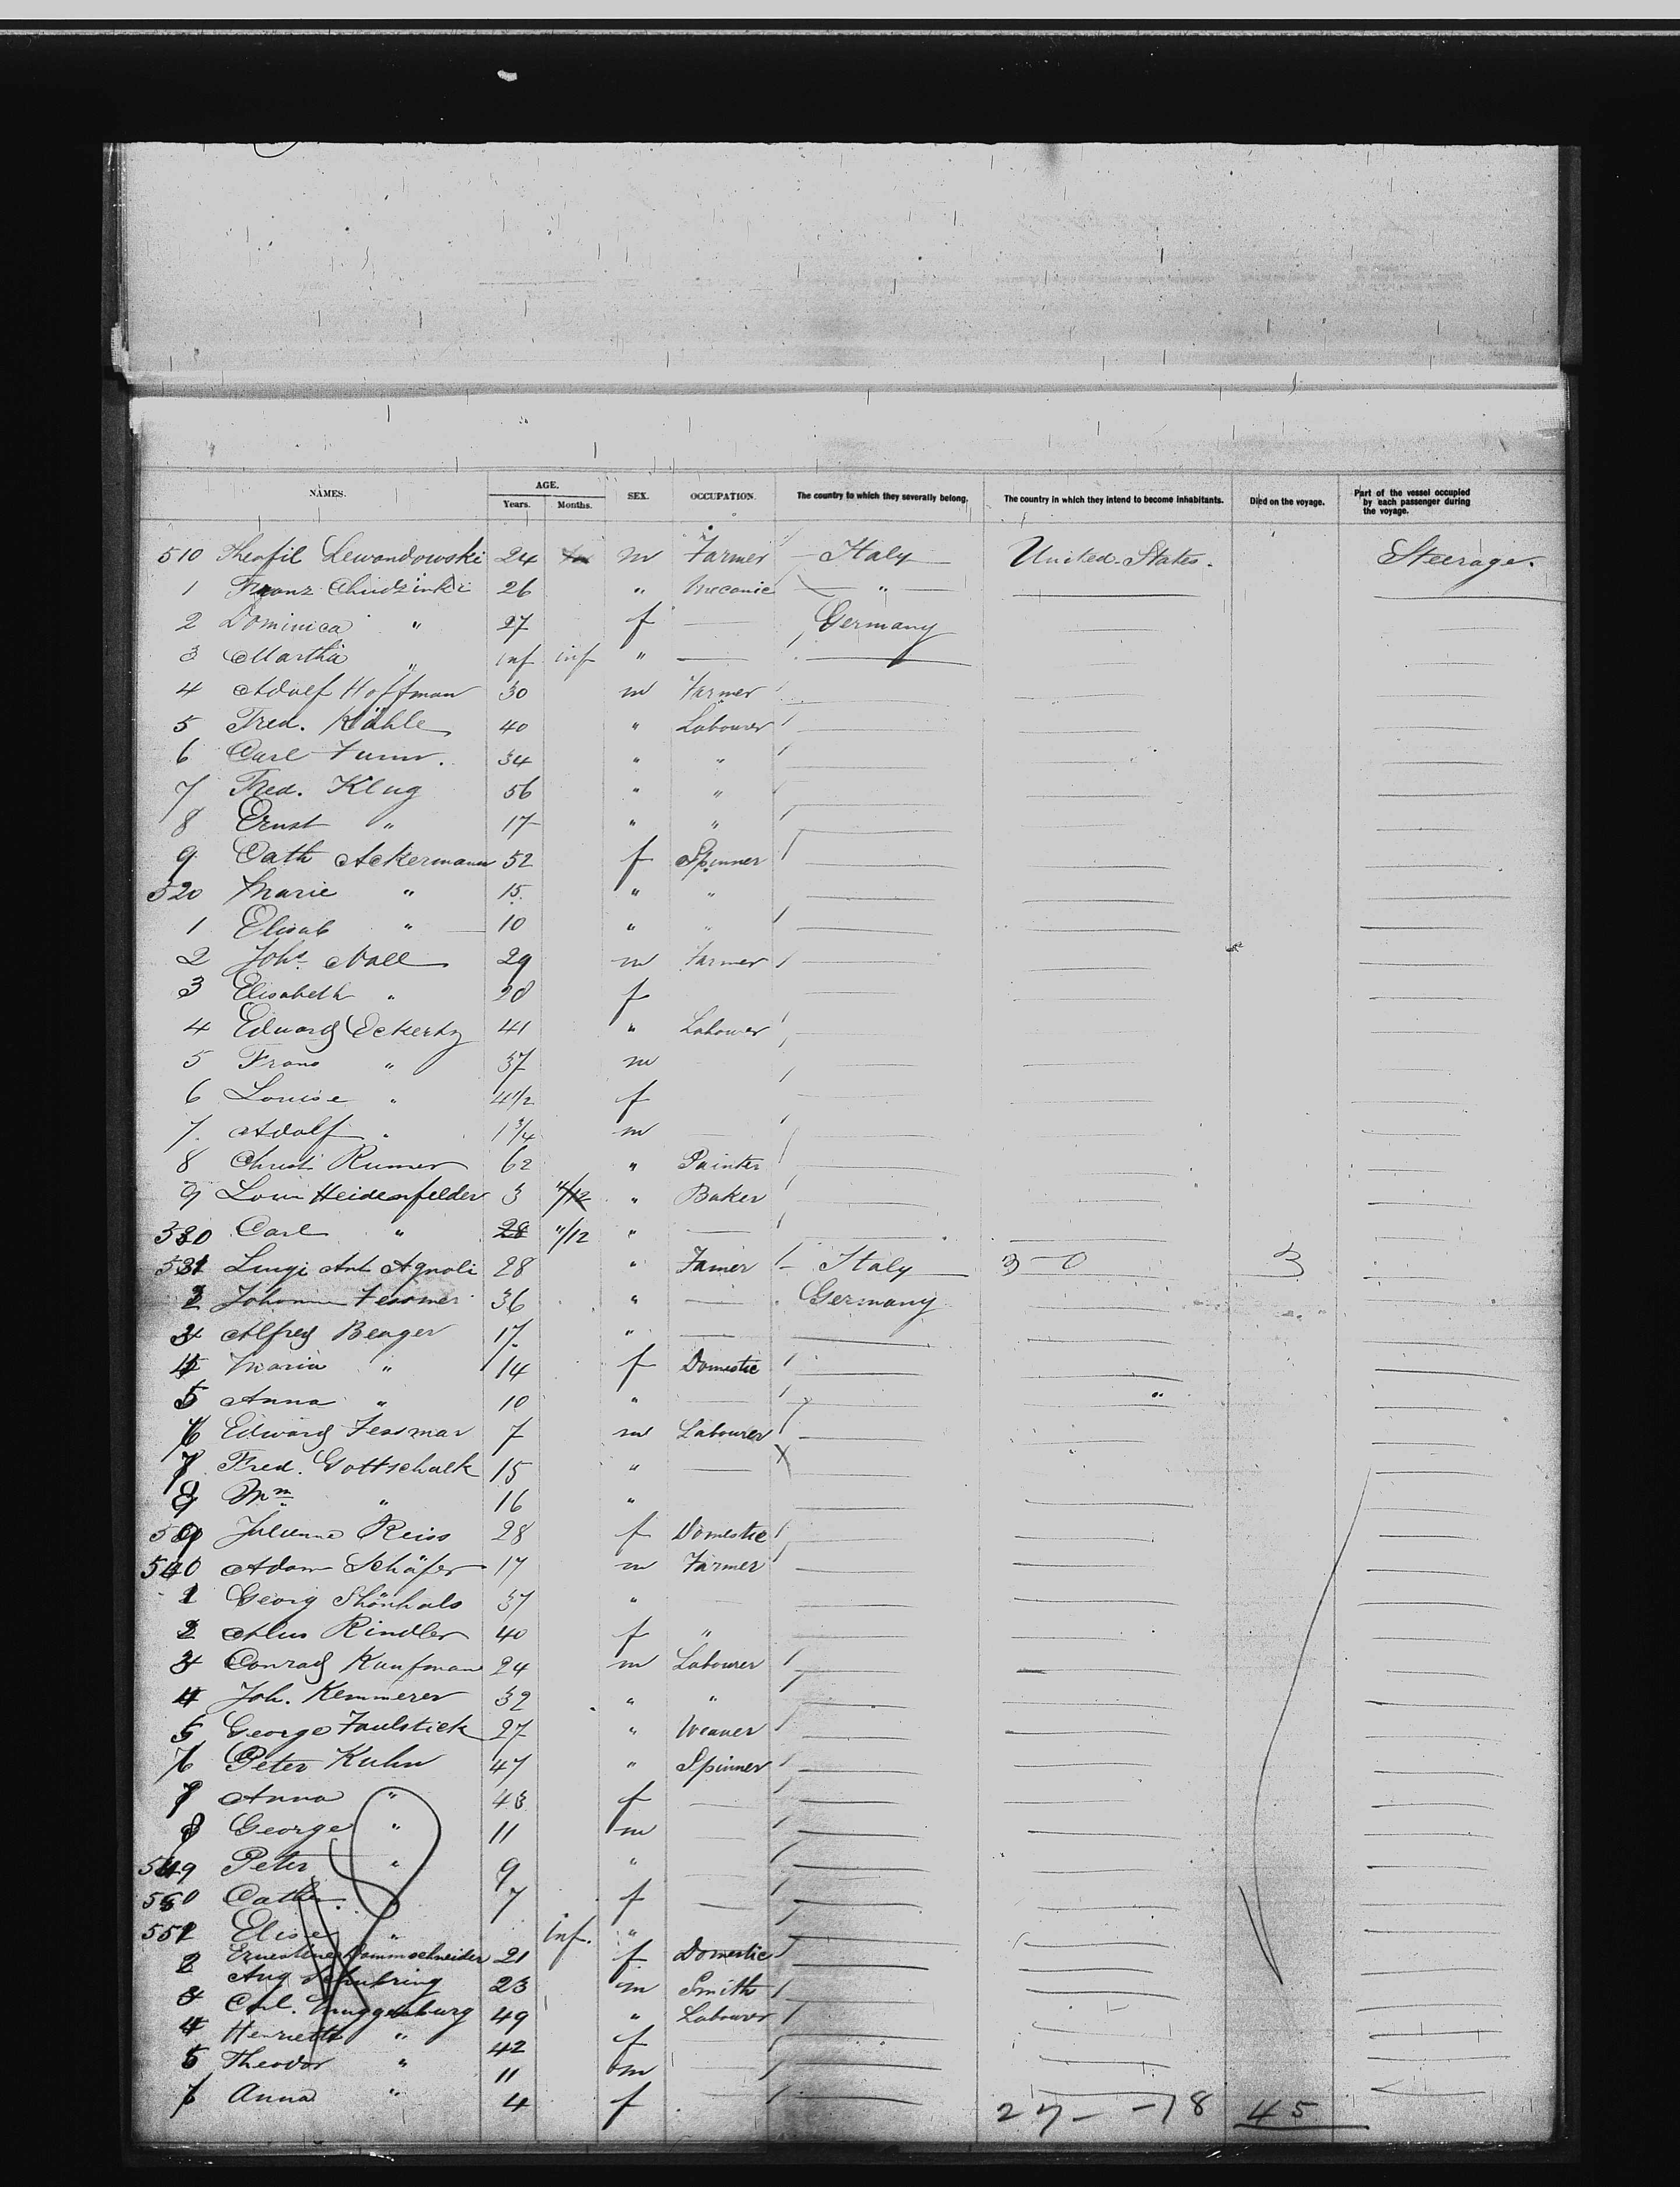 NAMES. AGE. Years. Months. SEX. OCCUPATION. The country to which they severally belong. The country in which they intend to become inhabitants. Died on the voyage. Part of the vessel occupied by each passenger during the voyage.
510 Theofil Lewandowski 24 m Farmer Italy United States. Steerage.
1 Franz Chudzinki 26 " Mecanic "
2 Dominica " 27 f Germany
3 Martha " inf inf "
4 Adolf Hoffman 30 m Farmer
5 Fred. Kähle 40 " Labourer
6 Carl 34 " "
7 Fred. Klug 56 " "
8 Ernst " 17 " "
9 Cath Ackermann 52 f Spinner
520 Marie " 15 " "
1 Elisab " 10 " "
2 Johs Nall 29 m Farmer
3 Elisabeth " 20 f
4 Edward Eckertz 41 " Labourer
5 Franz " 37 m
6 Louise " 4 1/2 f
7 Adolf " 1 3/4 m
8 Christ. Rumer 62 " Painter
9 Louis Heidenfelder 3 11/12 " Baker
530 Carl " 28 11/12 "
531 Luigi Ant Agnoli 28 " Famer Italy 3 0 3
2 Johann Fessmer 36 " Germany
3 Alfred Benger 17 "
4 Maria " 14 f Domestic
5 Anna " 10 "
6 Edward Fessmar 7 m Labourer
7 Fred. Gottschalk 15 "
8 Wm " 16 "
9 Julienne Reiss 28 f Domestic
540 Adam Schäfer 17 m Farmer
1 Georg Shönhals 37 "
2 Rindler 40 f "
3 Conrad Kaufman 24 m Labourer
4 Joh. Kemmerer 32 " "
5 George Faulstick 27 " Weaver
6 Peter Kuhn 47 " Spinner
7 Anna " 43 f
8 George " 11 m
549 Peter " 9 "
550 Cath. 7 f
551 Elise " inf. "
2 Ernestine Dammschneider 21 f Domestic
3 Aug Schubring 23 m Smith
Carl. Muggenburg 49 " Labourer
4 Henriette " 42 f
5 Theodor " 11 m
6 Anna " 4 f
27 - - 18 45